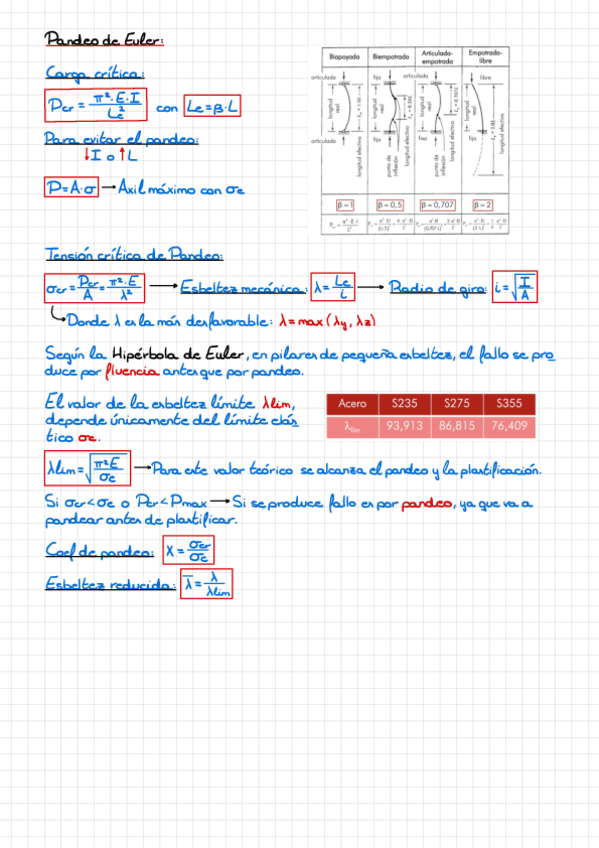 Pandeo de Euler:
Carga crítica:
Pcr = π²·E·I / Le² con Le=β·L
Para evitar el pandeo:
↓I o ↑L
P=A·σ → Axil máximo con σe
Biapoyada Biempotrada Articulada-empotrada Empotrada-libre
articulado fijo articulado libre
longitud real longitud real longitud real longitud real
longitud efectiva longitud efectiva longitud efectiva longitud efectiva
punto de inflexión punto de inflexión
articulado fijo fijo fijo
β = 1 β = 0,5 β = 0,707 β = 2
Tensión crítica de Pandeo:
σcr = Pcr/A = π²·E/λ² → Esbeltez mecánica: λ = Le/i → Radio de giro: i = √(I/A)
Donde λ es la más desfavorable: λ = max (λy, λz)
Según la Hipérbola de Euler, en pilares de pequeña esbeltez, el fallo se pro
duce por fluencia antes que por pandeo.
El valor de la esbeltez límite λlim,
depende únicamente del límite elás
tico σe.
Acero S235 S275 S355
λlim 93,913 86,815 76,409
λlim = √(π²E/σe) → Para este valor teórico se alcanza el pandeo y la plastificación.
Si σcr<σe o Pcr<Pmax → Si se produce fallo es por pandeo, ya que va a
pandear antes de plastificar.
Coef de pandeo: X = σcr/σe
Esbeltez reducida: λ̄ = λ/λlim